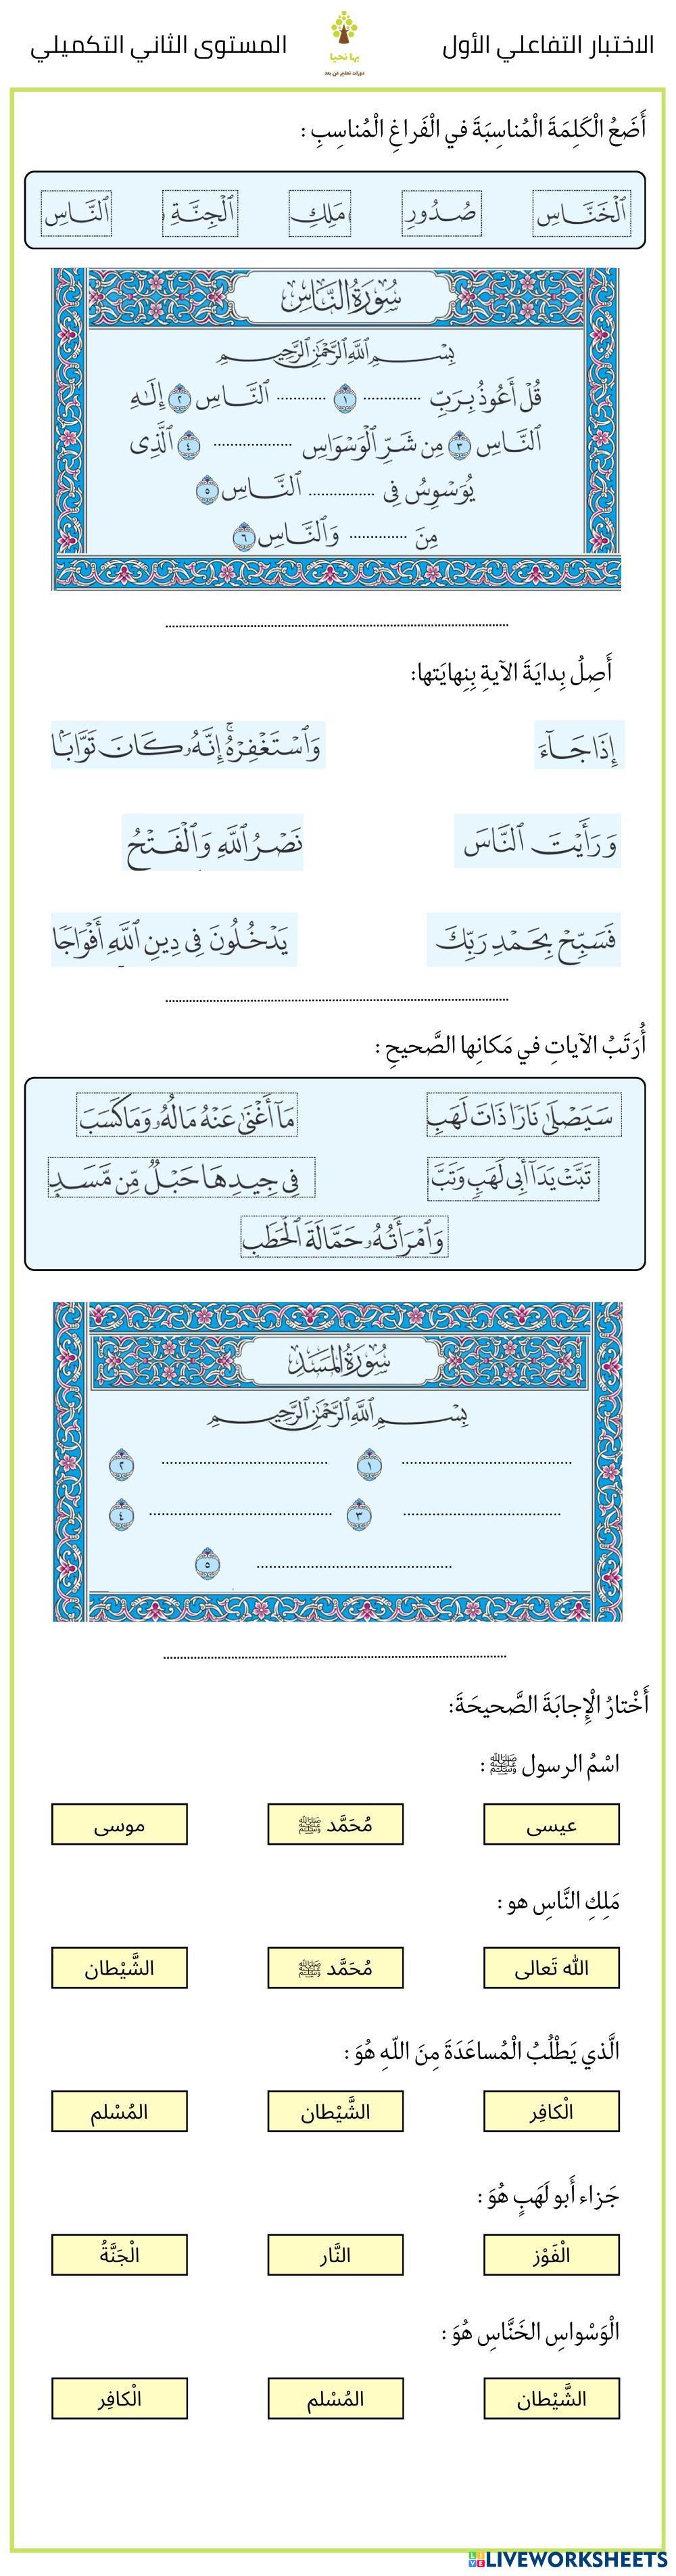 الاختبار التفاعلي الأول
بها نحيا
دورات تعليم عن بعد
المستوى الثاني التكميلي
أَضَعُ الْكَلِمَةَ الْمُناسِبَةَ في الْفَراغِ الْمُناسِبِ :
ٱلْخَنَّاسِ صُدُورِ مَلِكِ ٱلْجِنَّةِ ٱلنَّاسِ
سُورَةُ النَّاسِ
بِسْمِ اللَّهِ الرَّحْمَٰنِ الرَّحِيمِ
قُلْ أَعُوذُ بِرَبِّ .............. ١ ............ ٱلنَّاسِ ٢ إِلَٰهِ
ٱلنَّاسِ ٣ مِن شَرِّ ٱلْوَسْوَاسِ .................. ٤ ٱلَّذِى
يُوَسْوِسُ فِى ................ ٱلنَّاسِ ٥
مِنَ .............. وَٱلنَّاسِ ٦
أَصِلُ بِدايَةَ الآيةِ بِنِهايَتها:
إِذَا جَآءَ وَٱسْتَغْفِرْهُ ۚ إِنَّهُۥ كَانَ تَوَّابًۢا
وَرَأَيْتَ ٱلنَّاسَ نَصْرُ ٱللَّهِ وَٱلْفَتْحُ
فَسَبِّحْ بِحَمْدِ رَبِّكَ يَدْخُلُونَ فِى دِينِ ٱللَّهِ أَفْوَاجًا
أُرَتَبُ الآياتِ في مَكانِها الصَّحيحِ :
سَيَصْلَىٰ نَارًا ذَاتَ لَهَبٍ مَآ أَغْنَىٰ عَنْهُ مَالُهُۥ وَمَا كَسَبَ
تَبَّتْ يَدَآ أَبِى لَهَبٍ وَتَبَّ فِى جِيدِهَا حَبْلٌ مِّن مَّسَدٍۭ
وَٱمْرَأَتُهُۥ حَمَّالَةَ ٱلْحَطَبِ
سُورَةُ المَسَدِ
بِسْمِ اللَّهِ الرَّحْمَٰنِ الرَّحِيمِ
.............................. ١ .............................. ٢
.............................. ٣ .............................. ٤
.............................. ٥
أَخْتارُ الْإِجابَةَ الصَّحيحَةَ:
اسْمُ الرسول ﷺ :
عيسى مُحَمَّد ﷺ موسى
مَلِكِ النَّاسِ هو :
الله تَعالى مُحَمَّد ﷺ الشَّيْطان
الَّذي يَطْلُبُ الْمُساعَدَةَ مِنَ اللّهِ هُوَ :
الْكافِر الشَّيْطان المُسْلم
جَزاء أَبو لَهَبٍ هُوَ :
الْفَوْز النَّار الْجَنَّةُ
الْوَسْواسِ الخَنَّاسِ هُوَ :
الشَّيْطان المُسْلم الْكافِر
LIVEWORKSHEETS